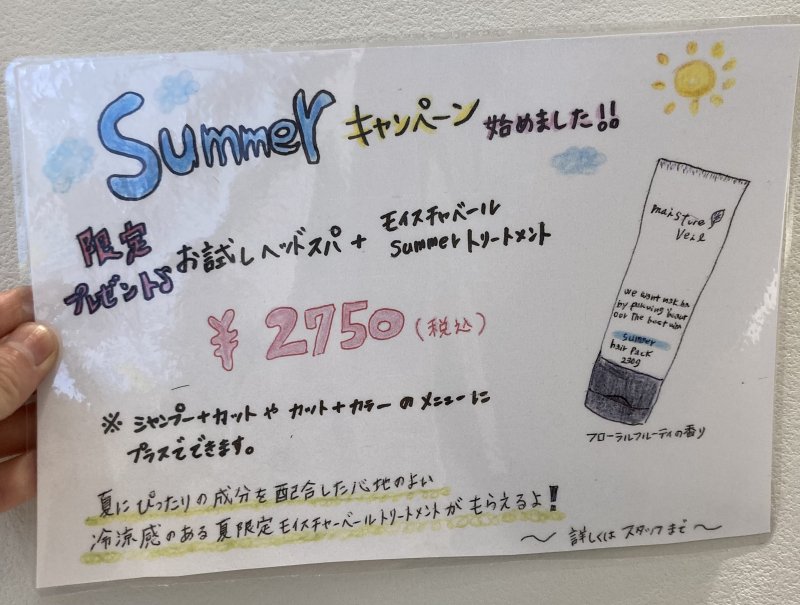 Summer キャンペーン 始めました!!
限定
プレゼント♪
お試しヘッドスパ +
モイスチャベール
Summerトリートメント
¥2750(税込)
※ シャンプー+カット や カット+カラー のメニューに
プラスでできます。
夏にぴったりの成分を配合した心地のよい
冷涼感のある夏限定モイスチャーベールトリートメントがもらえるよ!
〜 詳しくは スタッフまで 〜
moisture
Veil
summer
hair Pack
230g
フローラルフルーティの香り